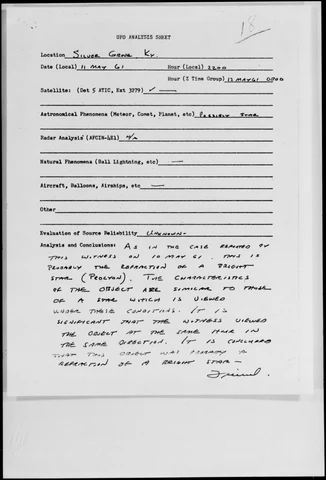 18
UFO ANALYSIS SHEET
Location SILVER GROVE, KY.
Date (Local) 11 MAY 61 Hour (Local) 2200
Hour (Z Time Group) 12 MAY 61 0300
Satellite: (Det 5 ATIC, Ext 3279) ✓ —
Astronomical Phenomena (Meteor, Comet, Planet, etc) POSSIBLY STAR
Radar Analysis (AFCIN-4E1) N/A
Natural Phenomena (Ball Lightning, etc) —
Aircraft, Balloons, Airships, etc —
Other
Evaluation of Source Reliability UNKNOWN-
Analysis and Conclusions: AS IN THE CASE REPORTED BY
THIS WITNESS ON 10 MAY 61. THIS IS
PROBABLY THE REFRACTION OF A BRIGHT
STAR (PROCYON). THE CHARACTERISTICS
OF THE OBJECT ARE SIMILAR TO THOSE
OF A STAR WHICH IS VIEWED
UNDER THESE CONDITIONS. IT IS
SIGNIFICANT THAT THE WITNESS VIEWED
THE OBJECT AT THE SAME HOUR IN
THE SAME DIRECTION. IT IS CONCLUDED
THAT THIS OBJECT WAS PROBABLY A
REFRACTION OF A BRIGHT STAR —